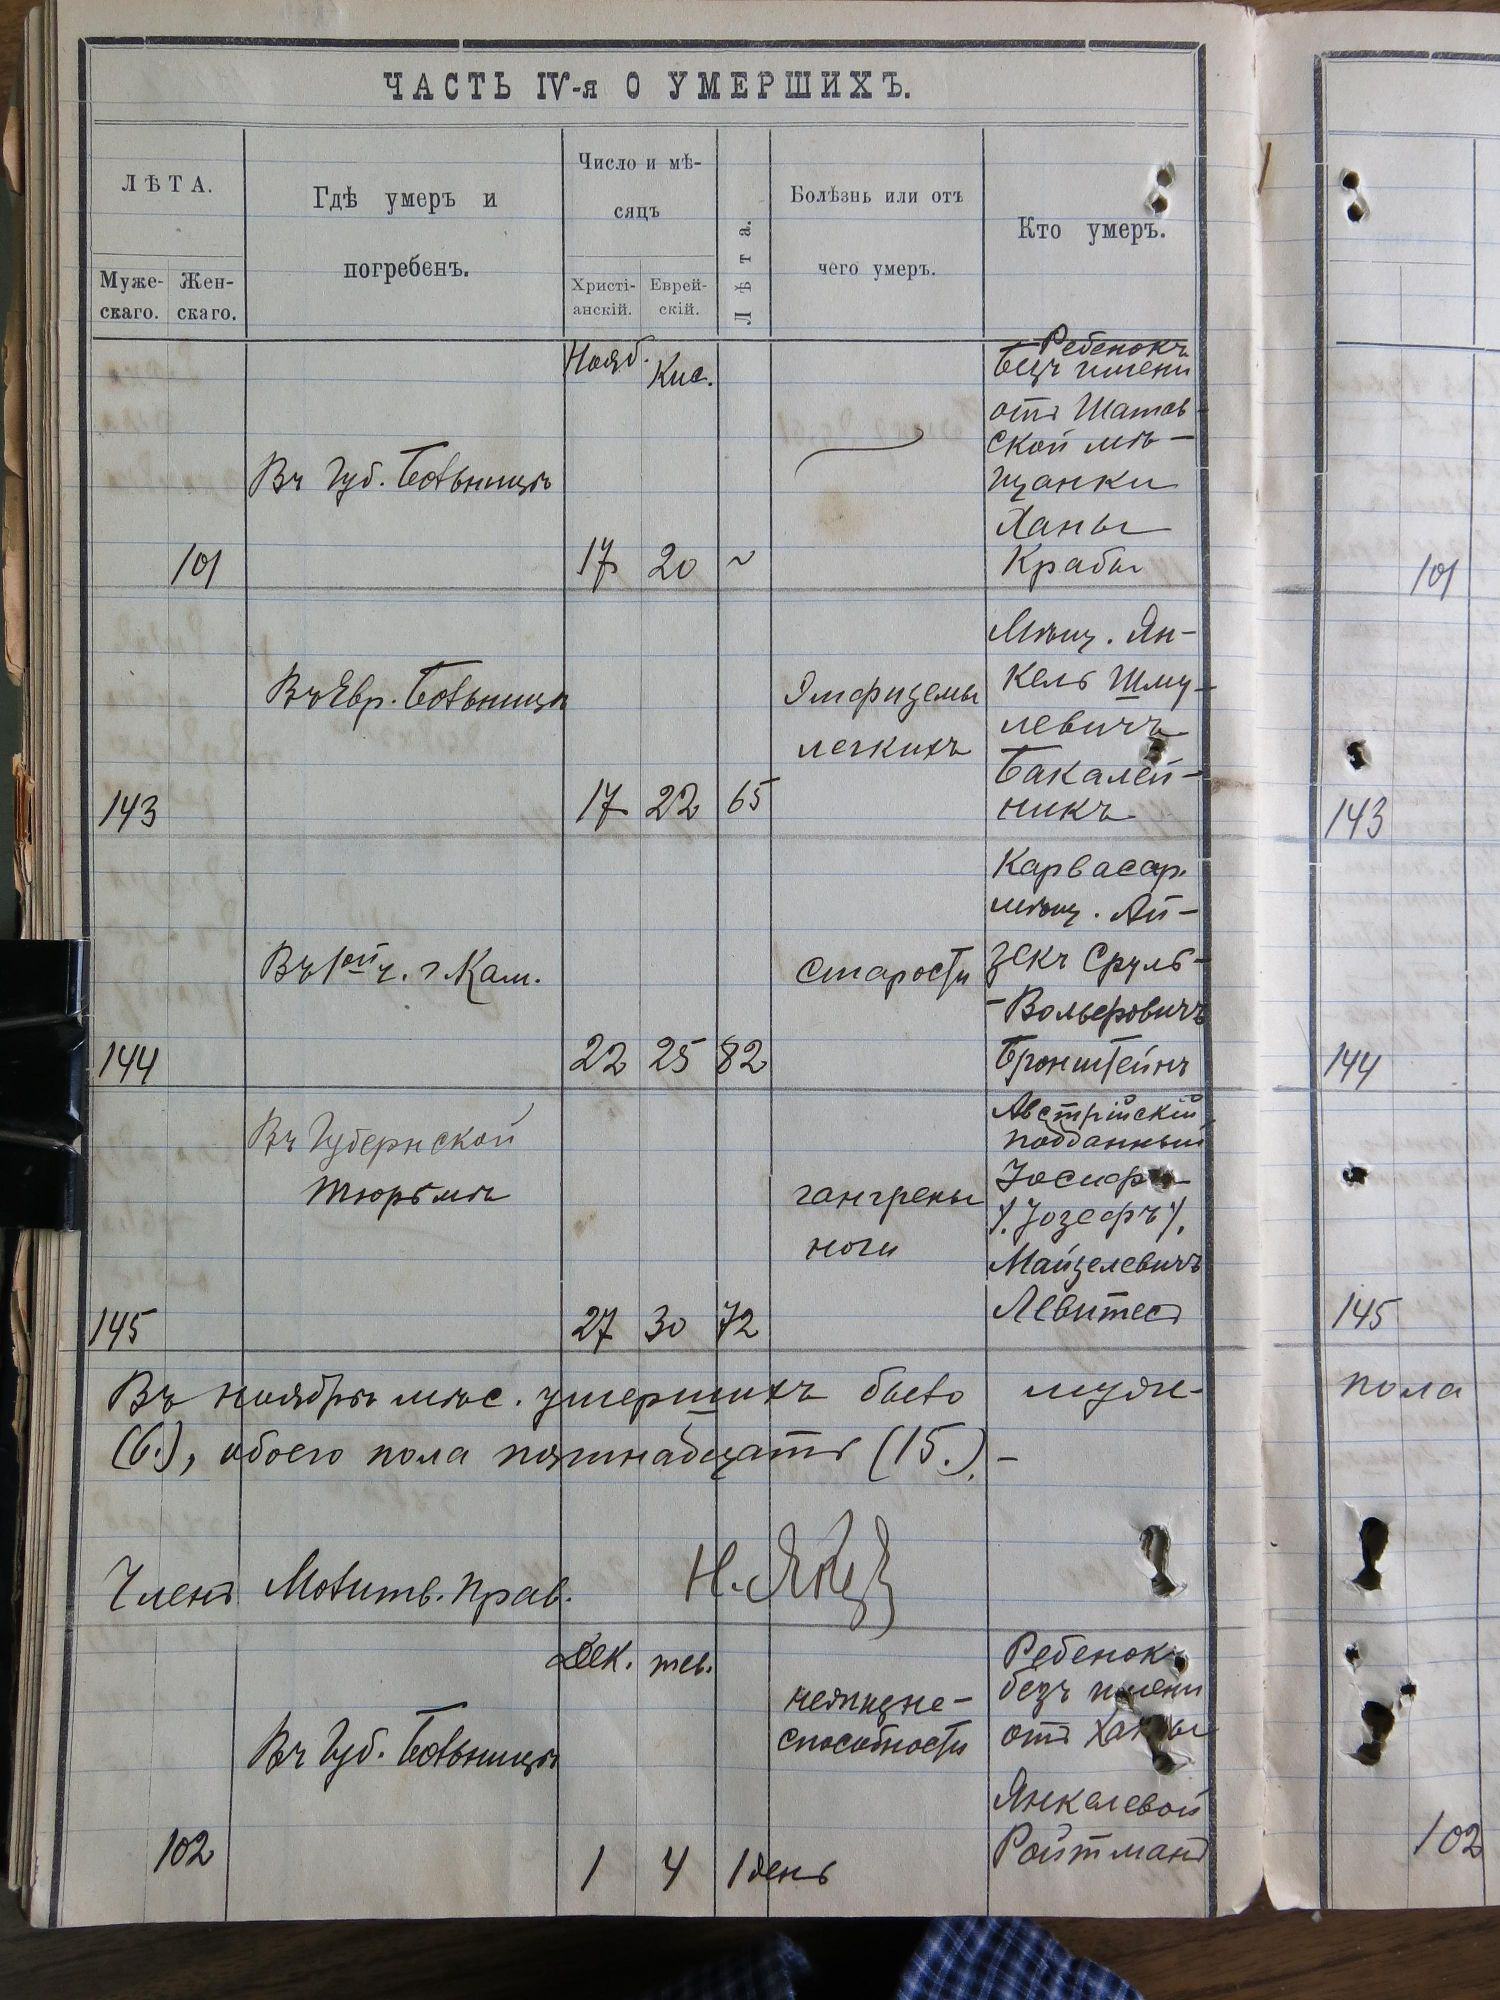 ЧАСТЬ IV-я О УМЕРШИХЪ.
ЛѢТА.
Муже-
скаго.
Жен-
скаго.
Гдѣ умеръ и
погребенъ.
Число и мѣ-
сяцъ
Христі-
анскій.
Еврей-
скій.
Лѣта.
Болѣзнь или отъ
чего умеръ.
Кто умеръ.
Нояб.
Кис.
101
Въ Губ. Больницѣ
17
20
~
Ребенокъ
безъ имени
отъ Шатав-
ской мѣ-
щанки
Ханы
Крабы
101
143
Въ Евр. Больницѣ
17
22
65
Эмфиземы
легкихъ
Мѣщ. Ян-
кель Шму-
левичъ
Бакалей-
никъ
143
144
Въ 1ой ч. г. Кам.
22
25
82
старости
Карвасар.
мѣщ. Ай-
зекъ Сруль-
-Вольфовичъ
Бронштейнъ
144
145
Въ Губернской
тюрьмѣ
27
30
72
гангрены
ноги
Австрійскій
подданный
Іосифъ
/.Іозефъ/.
Майзелевичъ
Левитесъ
145
Въ ноябрѣ мѣс. умершихъ было муж-
(6.), обоего пола пятнадцать (15.). -
пола
Членъ Молитв. Прав.
Дек.
тев.
102
Въ Губ. Больницѣ
1
4
1 день
способности
Ребенокъ
безъ имени
отъ Ханы
Янкелевой
Ройтманъ
102